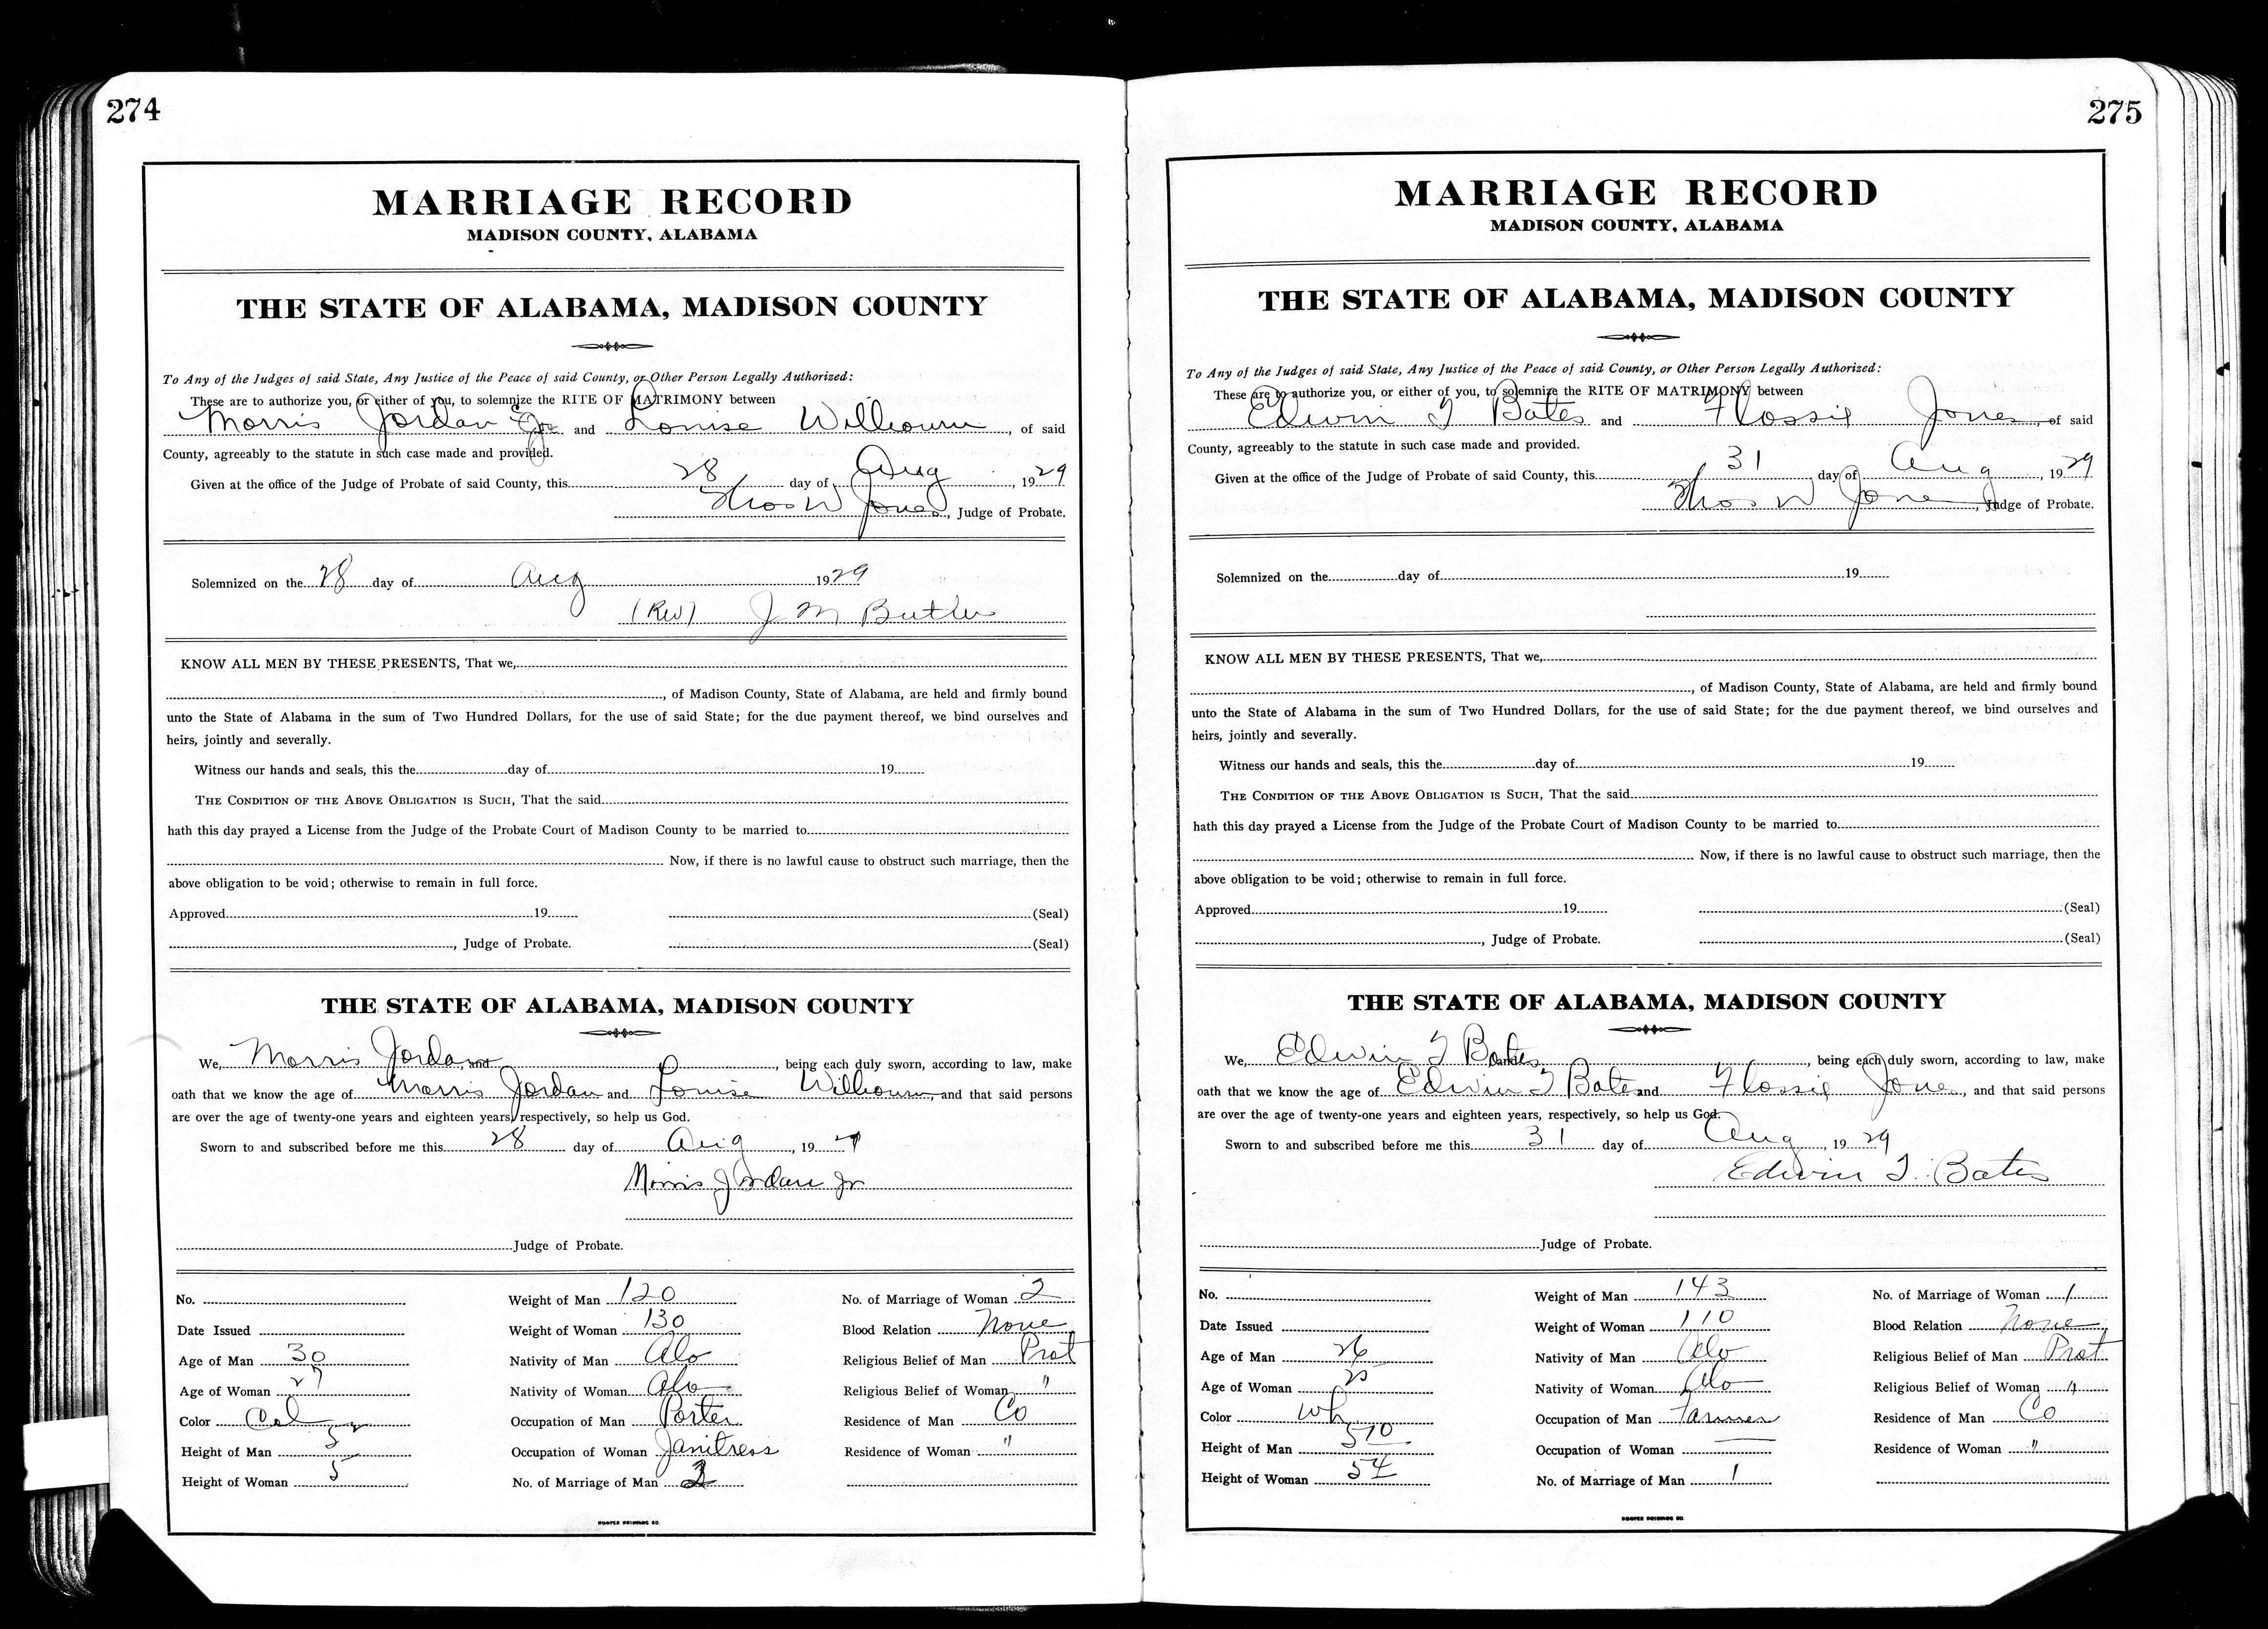 274
MARRIAGE RECORD
MADISON COUNTY, ALABAMA
THE STATE OF ALABAMA, MADISON COUNTY
To Any of the Judges of said State, Any Justice of the Peace of said County, or Other Person Legally Authorized:
These are to authorize you, or either of you, to solemnize the RITE OF MATRIMONY between
Morris Jordan Jr and Louise Wilbourn, of said
County, agreeably to the statute in such case made and provided.
Given at the office of the Judge of Probate of said County, this 28 day of Aug, 1929
Thos W Jones, Judge of Probate.
Solemnized on the 28 day of Aug 1929
(Rev) J M Butler
KNOW ALL MEN BY THESE PRESENTS, That we,
, of Madison County, State of Alabama, are held and firmly bound
unto the State of Alabama in the sum of Two Hundred Dollars, for the use of said State; for the due payment thereof, we bind ourselves and
heirs, jointly and severally.
Witness our hands and seals, this the day of 19
THE CONDITION OF THE ABOVE OBLIGATION IS SUCH, That the said
hath this day prayed a License from the Judge of the Probate Court of Madison County to be married to
Now, if there is no lawful cause to obstruct such marriage, then the
above obligation to be void; otherwise to remain in full force.
Approved 19 (Seal)
, Judge of Probate. (Seal)
THE STATE OF ALABAMA, MADISON COUNTY
We, Morris Jordan, and , being each duly sworn, according to law, make
oath that we know the age of Morris Jordan and Louise Wilbourn, and that said persons
are over the age of twenty-one years and eighteen years, respectively, so help us God.
Sworn to and subscribed before me this 28 day of Aug, 19
Morris Jordan Jr
Judge of Probate.
No. Weight of Man 120 No. of Marriage of Woman 2
Date Issued Weight of Woman 130 Blood Relation None
Age of Man 30 Nativity of Man Ala Religious Belief of Man Prot
Age of Woman 27 Nativity of Woman Ala Religious Belief of Woman "
Color Col Occupation of Man Porter Residence of Man Co
Height of Man 5 Occupation of Woman Janitress Residence of Woman "
Height of Woman 5 No. of Marriage of Man
275
MARRIAGE RECORD
MADISON COUNTY, ALABAMA
THE STATE OF ALABAMA, MADISON COUNTY
To Any of the Judges of said State, Any Justice of the Peace of said County, or Other Person Legally Authorized:
These are to authorize you, or either of you, to solemnize the RITE OF MATRIMONY between
Edwin T Bates and Flossie Jones, of said
County, agreeably to the statute in such case made and provided.
Given at the office of the Judge of Probate of said County, this 31 day of Aug, 1929
Thos W Jones, Judge of Probate.
Solemnized on the day of 19
KNOW ALL MEN BY THESE PRESENTS, That we,
, of Madison County, State of Alabama, are held and firmly bound
unto the State of Alabama in the sum of Two Hundred Dollars, for the use of said State; for the due payment thereof, we bind ourselves and
heirs, jointly and severally.
Witness our hands and seals, this the day of 19
THE CONDITION OF THE ABOVE OBLIGATION IS SUCH, That the said
hath this day prayed a License from the Judge of the Probate Court of Madison County to be married to
Now, if there is no lawful cause to obstruct such marriage, then the
above obligation to be void; otherwise to remain in full force.
Approved 19 (Seal)
, Judge of Probate. (Seal)
THE STATE OF ALABAMA, MADISON COUNTY
We, Edwin T Bates and , being each duly sworn, according to law, make
oath that we know the age of Edwin T Bates and Flossie Jones, and that said persons
are over the age of twenty-one years and eighteen years, respectively, so help us God.
Sworn to and subscribed before me this 31 day of Aug, 1929
Edwin T. Bates
Judge of Probate.
No. Weight of Man 143 No. of Marriage of Woman 1
Date Issued Weight of Woman 110 Blood Relation None
Age of Man 26 Nativity of Man Ala Religious Belief of Man Prot
Age of Woman Nativity of Woman Ala Religious Belief of Woman "
Color Wh Occupation of Man Farmer Residence of Man Co
Height of Man 5 10 Occupation of Woman Residence of Woman "
Height of Woman 5 4 No. of Marriage of Man 1